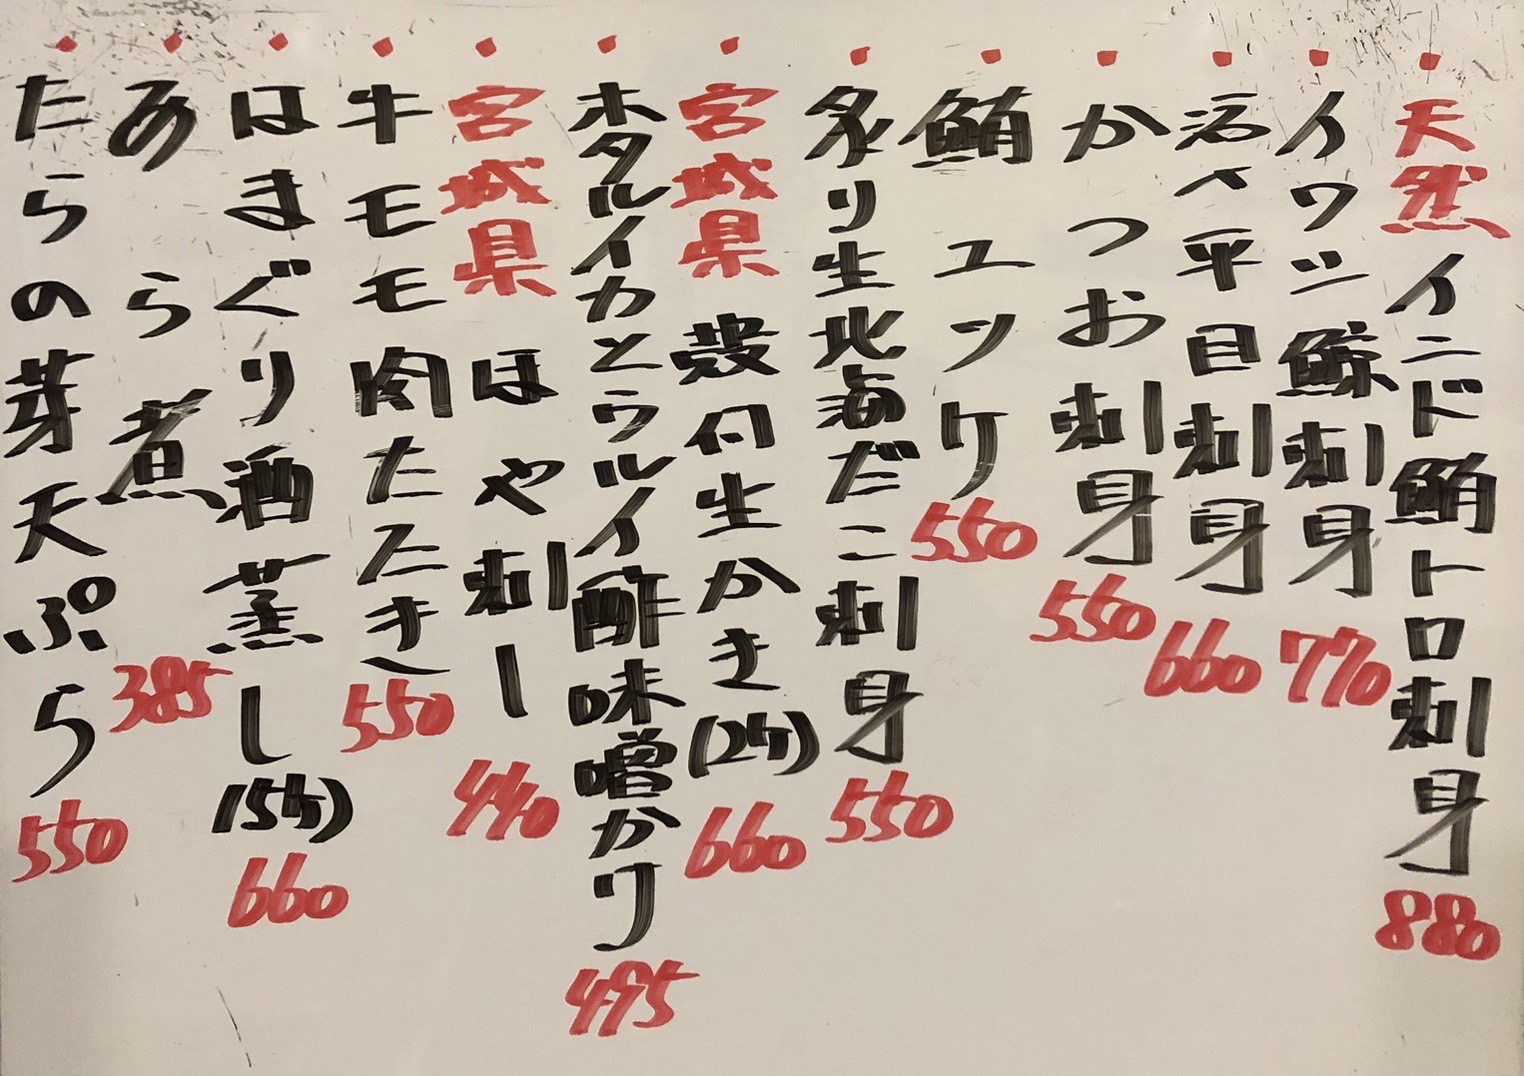 天然インド鮪トロ刺身 880
イワシ鯨刺身 770
活〆平目刺身 660
かつお刺身 550
鮪ユッケ 550
炙り生北海だこ刺身 550
宮城県 殻付生かき(2ケ) 660
ホタルイカとウルイ酢味噌かけ 495
宮城県 ほや刺し 440
牛モモ肉たたき 550
はまぐり酒蒸し(5ケ) 660
あら煮 385
たらの芽天ぷら 550